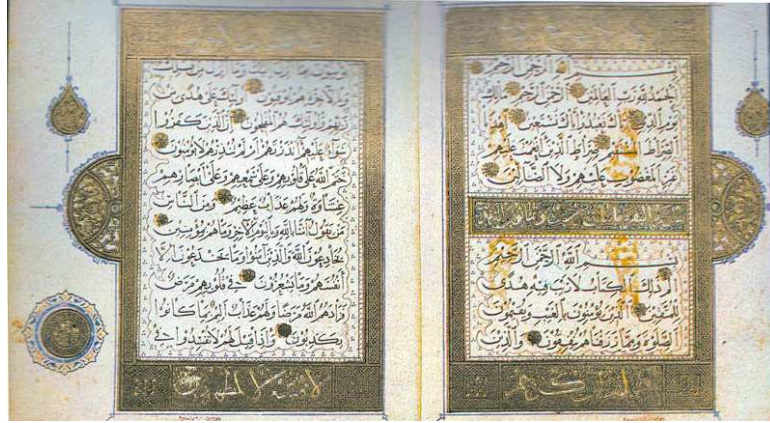 بسم الله الرحمن الرحيم
الحمد لله رب العالمين الرحمن الرحيم مالك
يوم الدين اياك نعبد واياك نستعين اهدنا
الصراط المستقيم صراط الذين انعمت عليهم
غير المغضوب عليهم ولا الضالين
بسم الله الرحمن الرحيم
الم ذلك الكتاب لا ريب فيه هدى
للمتقين الذين يؤمنون بالغيب ويقيمون
الصلوة ومما رزقناهم ينفقون والذين
يؤمنون بما انزل اليك وما انزل من قبلك
وبالآخرة هم يوقنون اولئك على هدى من
ربهم واولئك هم المفلحون ان الذين كفروا
سواء عليهم أانذرتهم ام لم تنذرهم لا يؤمنون
ختم الله على قلوبهم وعلى سمعهم وعلى ابصارهم
غشاوة ولهم عذاب عظيم ومن الناس
من يقول آمنا بالله وباليوم الآخر وما هم بمؤمنين
يخادعون الله والذين آمنوا وما يخدعون الا
انفسهم وما يشعرون في قلوبهم مرض
فزادهم الله مرضا ولهم عذاب اليم بما كانوا
يكذبون واذا قيل لهم لا تفسدوا في
لا يمسه الا المطهرون